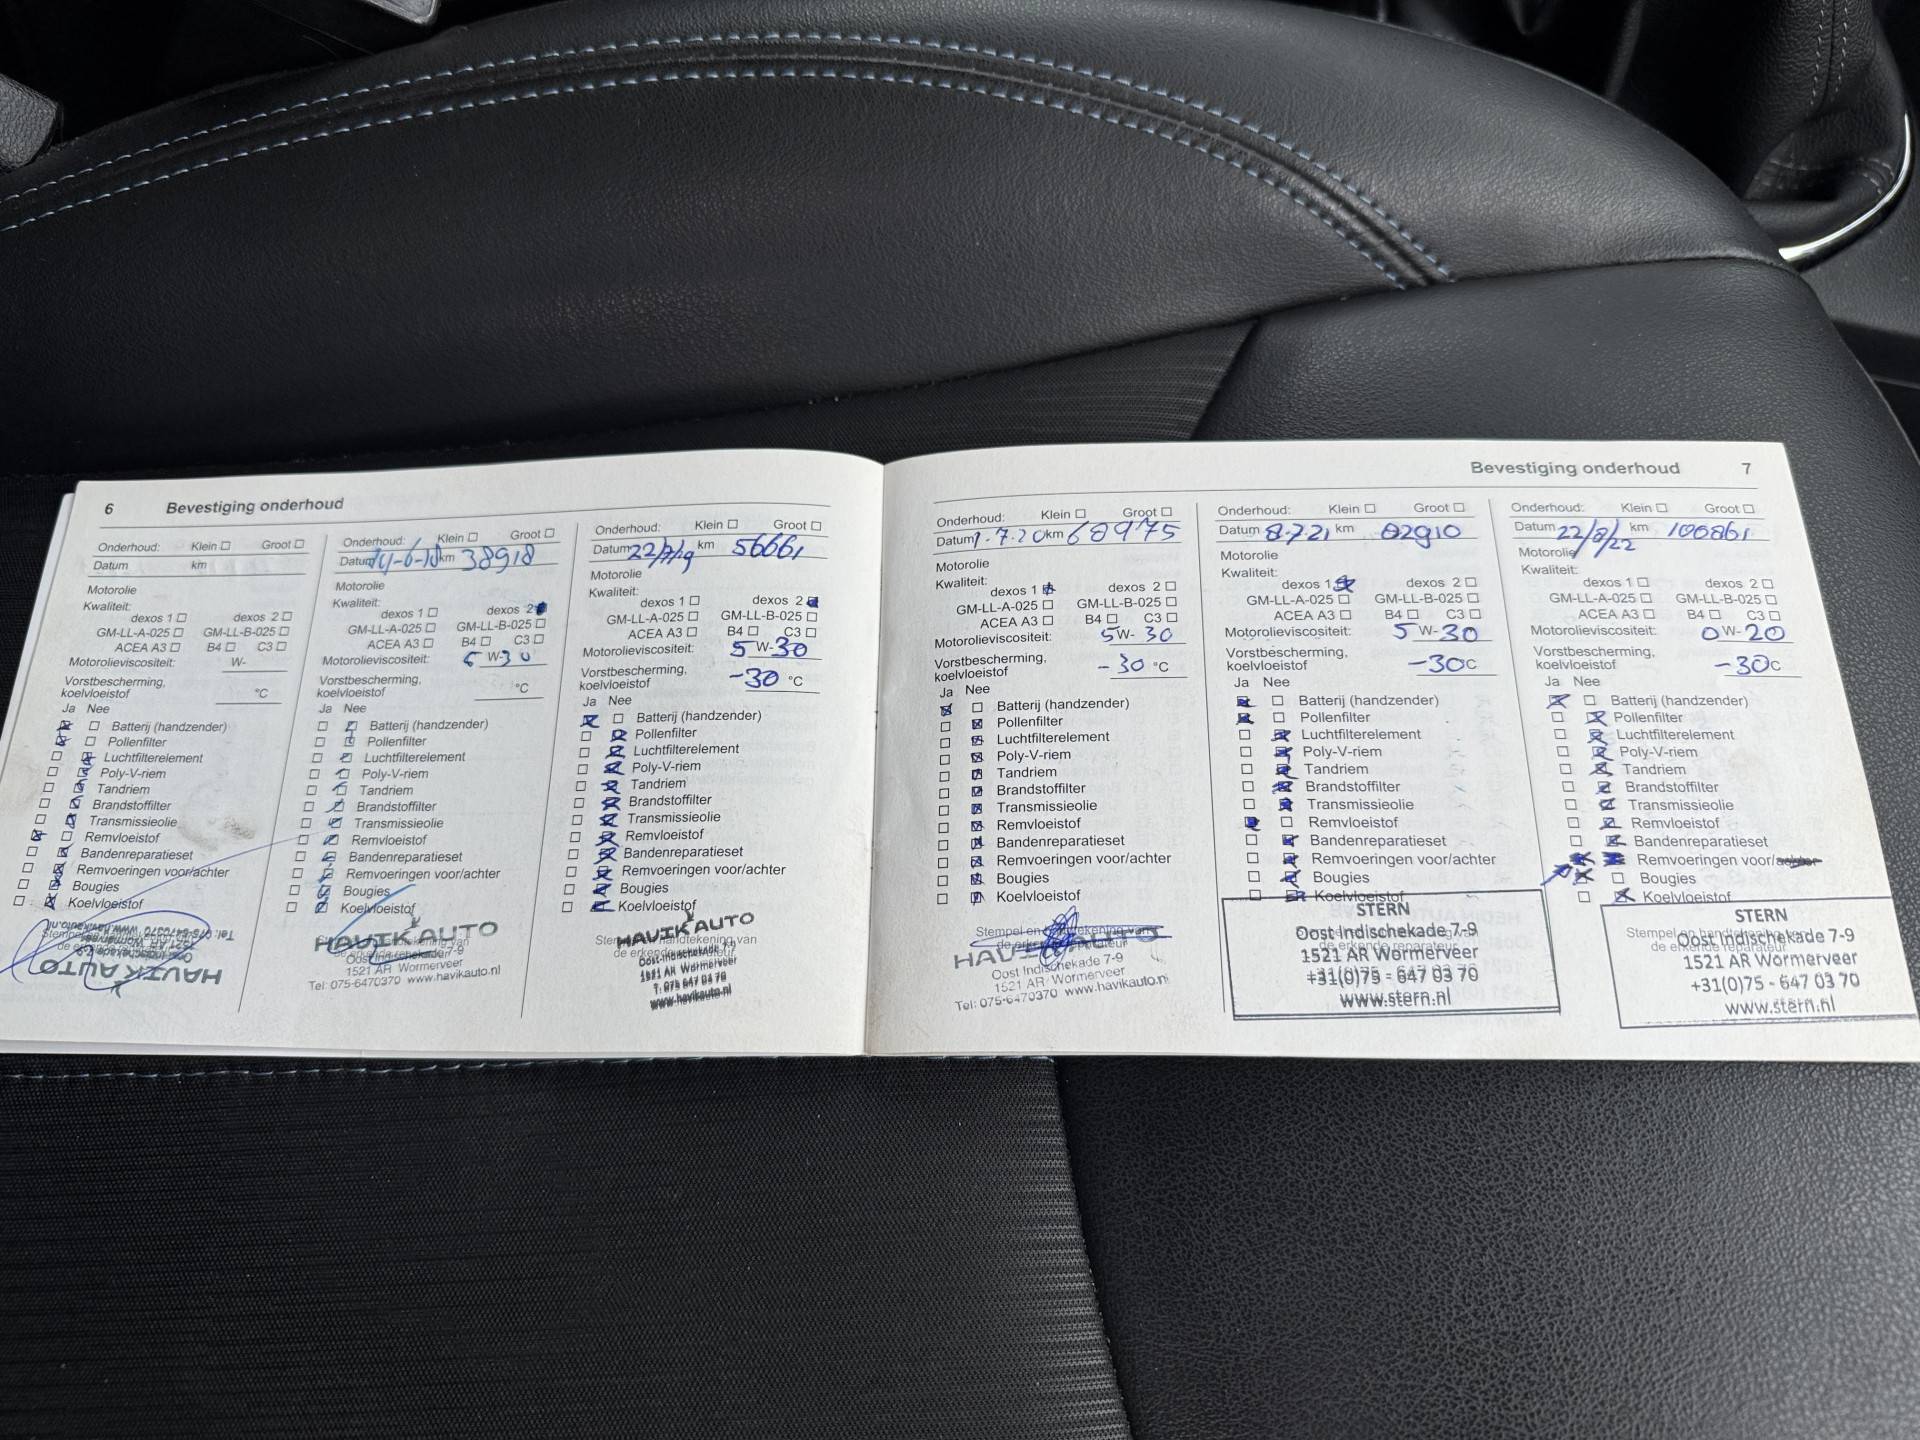 6 Bevestiging onderhoud
Onderhoud: Klein Groot
Datum km
Motorolie
Kwaliteit:
dexos 1 dexos 2
GM-LL-A-025 GM-LL-B-025
ACEA A3 B4 C3
Motorolieviscositeit: W-
Vorstbescherming,
koelvloeistof °C
Ja Nee
Batterij (handzender)
Pollenfilter
Luchtfilterelement
Poly-V-riem
Tandriem
Brandstoffilter
Transmissieolie
Remvloeistof
Bandenreparatieset
Remvoeringen voor/achter
Bougies
Koelvloeistof
HAVIK AUTO
Onderhoud: Klein Groot
Datum 14-6-18 km 38918
Motorolie
Kwaliteit:
dexos 1 dexos 2
GM-LL-A-025 GM-LL-B-025
ACEA A3 B4 C3
Motorolieviscositeit: 5 W-30
Vorstbescherming,
koelvloeistof °C
Ja Nee
Batterij (handzender)
Pollenfilter
Luchtfilterelement
Poly-V-riem
Tandriem
Brandstoffilter
Transmissieolie
Remvloeistof
Bandenreparatieset
Remvoeringen voor/achter
Bougies
Koelvloeistof
HAVIK AUTO
Oost Indischekade 7-9
1521 AR Wormerveer
Tel: 075-6470370 www.havikauto.nl
Onderhoud: Klein Groot
Datum 22/7/19 km 56661
Motorolie
Kwaliteit:
dexos 1 dexos 2
GM-LL-A-025 GM-LL-B-025
ACEA A3 B4 C3
Motorolieviscositeit: 5 W-30
Vorstbescherming,
koelvloeistof -30 °C
Ja Nee
Batterij (handzender)
Pollenfilter
Luchtfilterelement
Poly-V-riem
Tandriem
Brandstoffilter
Transmissieolie
Remvloeistof
Bandenreparatieset
Remvoeringen voor/achter
Bougies
Koelvloeistof
Stempel en handtekening van
de erkende reparateur
HAVIK AUTO
Oost-Indischekade 7-9
1521 AR Wormerveer
T. 075 647 03 70
www.havikauto.nl
Bevestiging onderhoud 7
Onderhoud: Klein Groot
Datum 1-7-20 km 68975
Motorolie
Kwaliteit:
dexos 1 dexos 2
GM-LL-A-025 GM-LL-B-025
ACEA A3 B4 C3
Motorolieviscositeit: 5W-30
Vorstbescherming,
koelvloeistof -30 °C
Ja Nee
Batterij (handzender)
Pollenfilter
Luchtfilterelement
Poly-V-riem
Tandriem
Brandstoffilter
Transmissieolie
Remvloeistof
Bandenreparatieset
Remvoeringen voor/achter
Bougies
Koelvloeistof
Stempel en handtekening van
de erkende reparateur
HAVIK AUTO
Oost Indischekade 7-9
1521 AR Wormerveer
Tel: 075-6470370 www.havikauto.nl
Onderhoud: Klein Groot
Datum 8.7.21 km 82910
Motorolie
Kwaliteit:
dexos 1 dexos 2
GM-LL-A-025 GM-LL-B-025
ACEA A3 B4 C3
Motorolieviscositeit: 5 W-30
Vorstbescherming,
koelvloeistof -30C
Ja Nee
Batterij (handzender)
Pollenfilter
Luchtfilterelement
Poly-V-riem
Tandriem
Brandstoffilter
Transmissieolie
Remvloeistof
Bandenreparatieset
Remvoeringen voor/achter
Bougies
Koelvloeistof
STERN
Oost Indischekade 7-9
1521 AR Wormerveer
+31(0)75 - 647 03 70
www.stern.nl
Onderhoud: Klein Groot
Datum 22/8/22 km 100861
Motorolie
Kwaliteit:
dexos 1 dexos 2
GM-LL-A-025 GM-LL-B-025
ACEA A3 B4 C3
Motorolieviscositeit: 0 W-20
Vorstbescherming,
koelvloeistof -30C
Ja Nee
Batterij (handzender)
Pollenfilter
Luchtfilterelement
Poly-V-riem
Tandriem
Brandstoffilter
Transmissieolie
Remvloeistof
Bandenreparatieset
Remvoeringen voor/achter
Bougies
Koelvloeistof
STERN
Stempel en handtekening van
de erkende reparateur
Oost Indischekade 7-9
1521 AR Wormerveer
+31(0)75 - 647 03 70
www.stern.nl